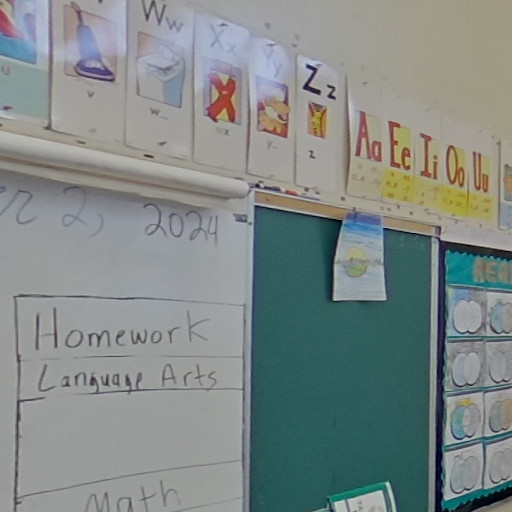 Ww
Xx
Yy
Zz
Aa
Ee
Ii
Oo
Uu
u
v
w
y
z
r 2, 2024
Homework
Language Arts
Math